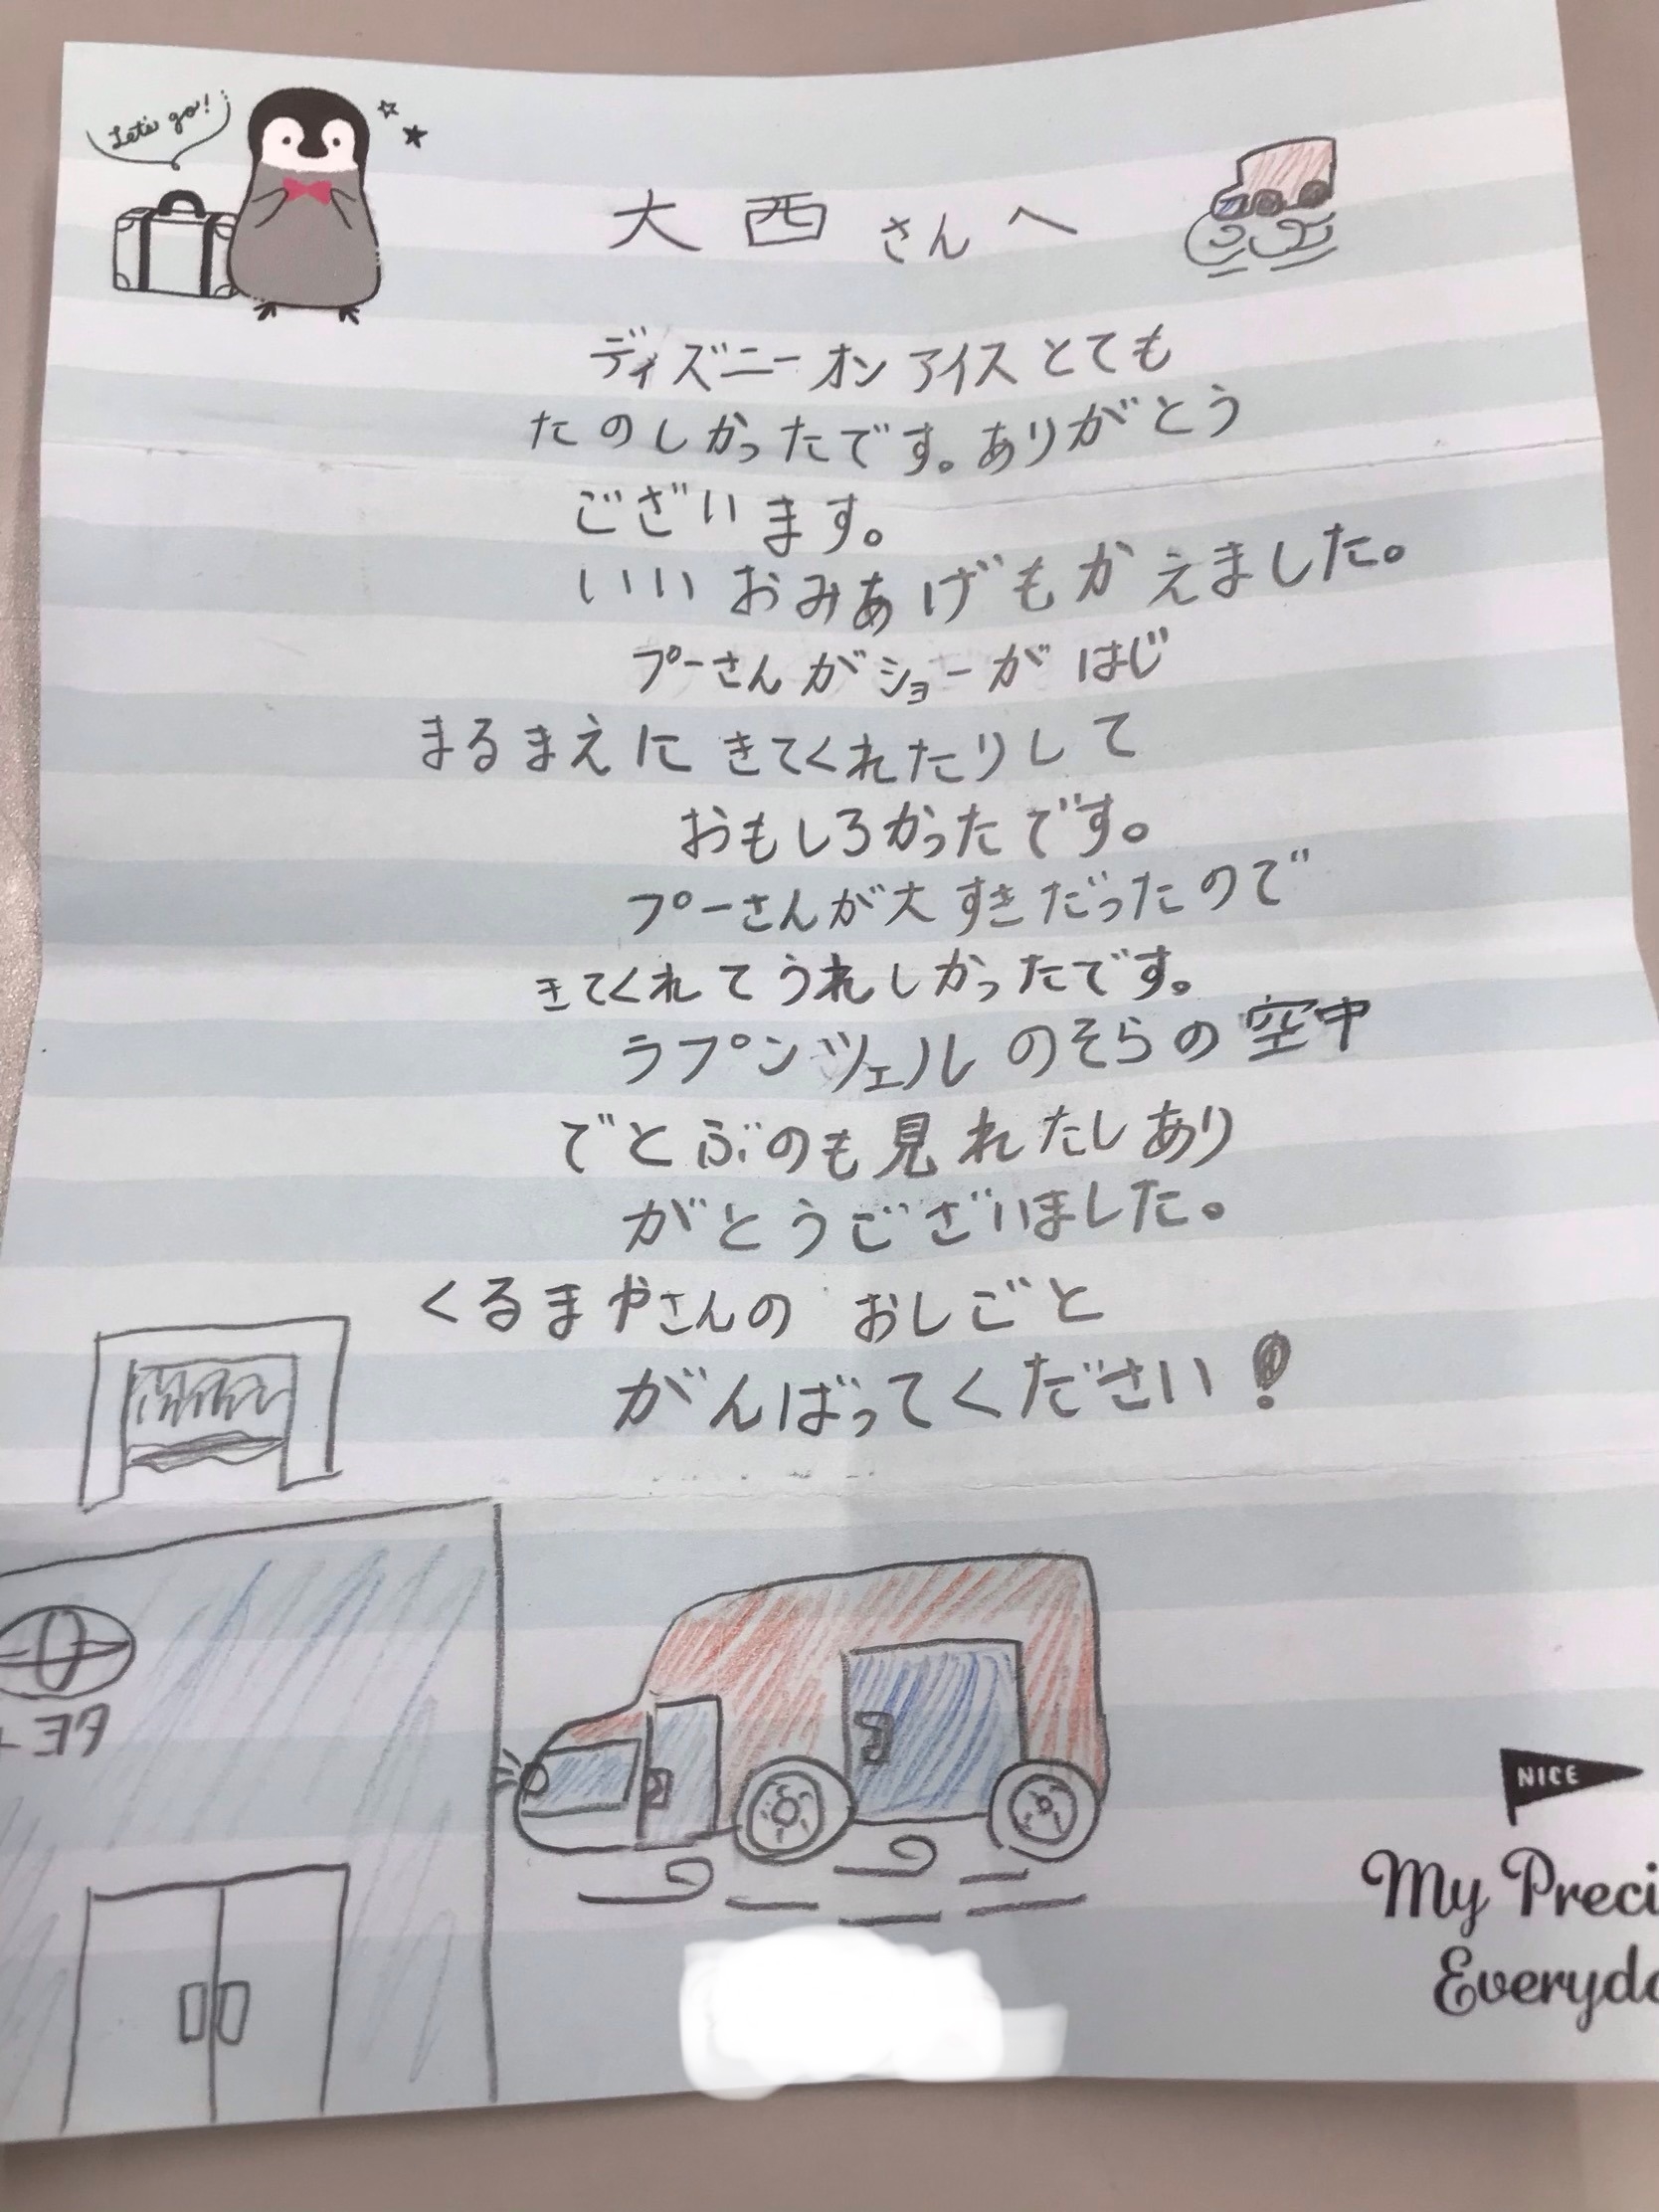 Let's go!
大西さんへ
ディズニーオンアイスとても
たのしかったです。ありがとう
ございます。
いいおみあげもかえました。
プーさんがショーがはじ
まるまえにきてくれたりして
おもしろかったです。
プーさんが大すきだったので
きてくれてうれしかったです。
ラプンツェルのそらの空中
でとぶのも見れたしあり
がとうございました。
くるまやさんのおしごと
がんばってください!
NICE
My Preci
Everyd